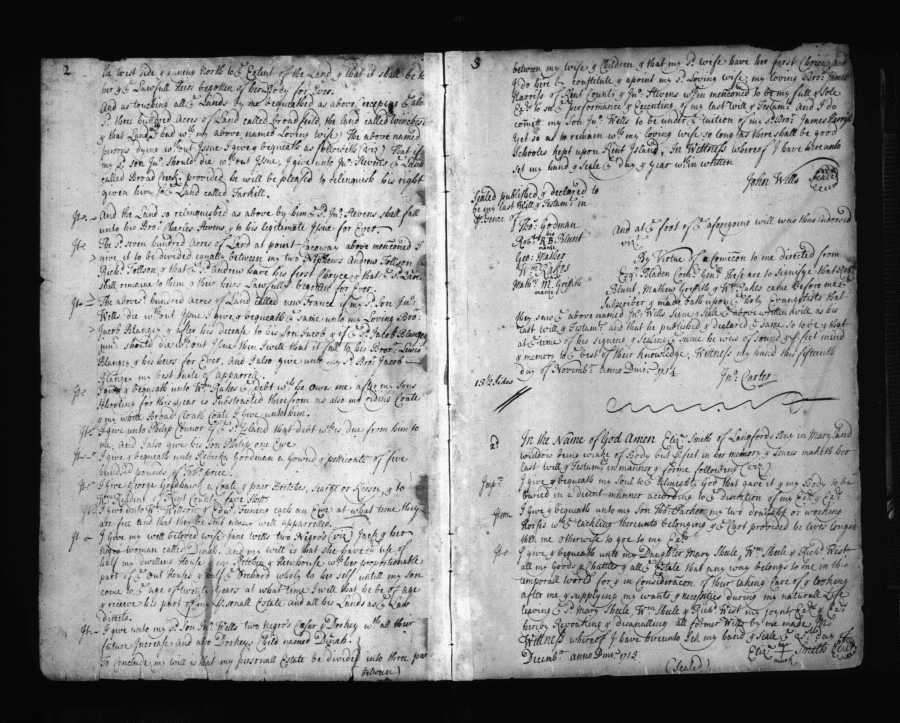 2
the west side & runing North to ye Extent of the Land & that it shall be to
her & Lawfull heirs begotten of her Body for Ever.
And as touching all ye Lands by me bequeathed as above excepting ye Late
Sd three hundred Acres of Land called broadfield, the land called
& that Land had wth my above named Loving wife The above named
persons dying wthout Issue I give & bequeath as followeth (viz) That if
my Sd Son Jno should die wthout Issue, I give unto Jno Stevens ye Land
called Broad Creek provided he will be pleased to relenquish his right
given him to Land called
Ite- And the Land so relenquished as above by him ye Sd Jno Stevens shall fall
unto his Bror Charles Stevens & to his legitemate Issue for Ever
Ite The Sd Seven hundred Acres of Land at point above mentioned I
give it to be divided equally between my two Nephews Andrew Tollson
Richd Tollson & that ye Sd Andrew have his first Choyce & that ye Sd Land
shall remain to them & their heirs Lawfully begotten for Ever.
Ite- The aboves hundred Acres of Land called new France if my Sd Son Jno
Wells die without Issue I give & bequeath ye same unto my Loving Bro:
Jacob Blangey & after his decease to his Son Jacob & if ye Sd Jacob Blangey
junr should die without Issue then I will that it fall to his Bror Lewis
Blangey & his heirs for Ever, And I also give unto my Sd Bror Jacob
Blangey my best suite of apparrell.
Ite I give & bequeath unto Wm Rakes ye debt wch he owe me after my Sons
Schooling for this year is Substracted therefrom as also my Coate
& my worst Broad Cloath Coate I give unto him.
Ite I give unto Philip Connor of ye Sd Island that debt wch is due from him to
me, And I also give his Son Philip one Ewe
Ite I give & bequeath unto Rebecka Goodman a Gownd & petticoate of five
hundred pounds of Tobo price.
Ite I give George Goldhawk a Coate & pair Britches, Searge or Kersey, & to
Wm of Kent County five Shirts
Ite I give unto Wilkson & Edwd each an Ewe at what time they
are free and that they be sent away well apparrelled.
Ite I give my well beloved wife Jane Wells two Negro's (viz) Jack & her
Negro woman called Dinah, And my will is that she have ye use of
half my dwelling House & my Kitchin & Henhouse wth her proportionable
part of ye out Houses & half ye orchard wholy to her self untill my son
come to ye age of twenty years at what time I will that he be of age
& receive his part of my Personall Estate and all his Lands as ye Law
directs.
Ite- I give unto my Sd Son Jno Wells two negro's Cesar & Dorkey wth all their
future Increase And also Dorkeys Child named Dijah.
To conclude my will is that my personall Estate be divided into three par
between)
3
between my wife & Children, & that my Sd wife have her first Choice, and
I do here by constitute & apoint my Sd Loving wife, my loving Bror James
Harriss of Kent County & Jno Stevens when mencioned to be my full & Sole
Exrs to ye performance & Executing of my last will & Testamt And I do
comitt my Son Jno Wells to be under ye tuition of my Sd Bror James Harriss
yet so as to remain wth my loving wife so long as there shall be good
Schooles kept upon Kent Island, In Wittness whereof I have here unto
set my hand & seale ye day & year when written
John Wells (Seale)
Sealed published & declared to
be my last Will & Testamt in
presence of
Tho: Godman
his
Robt RB Blunt
marke
Geo: Mathes
Wm Rakes
Mathw M Griffith
marke
And at ye foot of ye aforegoing will was thus indorsed
viz
By Virtue of a comicon to me directed from
Esqr Bladen Comr Genll these are to signifye that Robt
Blunt, Mathew Griffith & Wm Rakes came before me ye
Subscriber & made oath upon ye holy Evangelists that
they saw ye above named Jno Wells Signe & seale ye above written will as his
last will & Testamt and that he published & declared ye same so to be & that
at ye time of his signing & sealing ye same he was of sound & pfect mind
& memory to ye best of their knowledge, Wittness my hand this fifteenth
day of Novembr Anno Dmi 1714
Jno Carter
15 Sides
In the Name of God Amen Eliz: Smith of Langfords Bay in Maryland
widdow being weake of Body but pfect in her memory & sences maketh her
last will & Testamt in manner & forme following (viz)
Impr I give & bequeath my Soul to ye Almighty God that gave it & my Body to be
buried in a decent manner according to ye direction of my Exrs
Item I give & bequeath unto my Son Thos Parker my two draught or working
Horses wth ye tackling thereunto belonging & ye Cart provided he lives longer
then me otherwise to goe to my Exrs
Ite I give & bequeath unto my Daughter Mary Shele, Wm Shele & Richd West
all my Goods & Chattles & all ye Estate that any way belongs to me in this
temporall world for & in Consideracon of their taking Care of & looking
after me & supplying my wants & necessities during my naturall Life
leaving ye Sd Mary Shele Wm Shele & Richd West my joynt Exrs
hereby Revoaking & disanulling all former Wills by me made In
Wittness whereof I have hereunto set my hand & seale ye day of
Decembr anno Dmi 1713
Eliz: Smith (Seale)
mark
(Sealed)